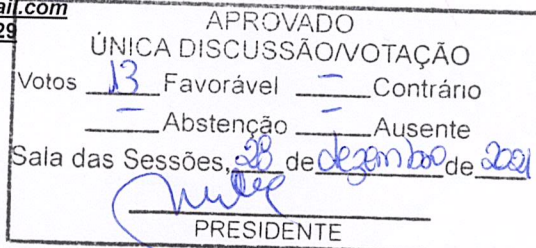 ail.com
29
APROVADO
ÚNICA DISCUSSÃO/VOTAÇÃO
Votos 13 Favorável - Contrário
- Abstenção - Ausente
Sala das Sessões, 28 de dezembro de 2021
PRESIDENTE